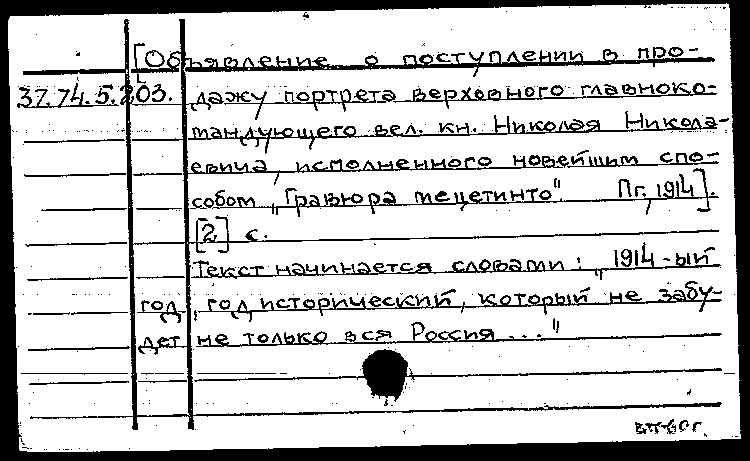 [Объявление о поступлении в про-
37.74.5.203. дажу портрета верховного главноко-
мандующего вел. кн. Николая Никола-
евича, исполненного новейшим спо-
собом „Гравюра мецетинто“ Пг, 1914].
[2] с.
Текст начинается словами: „1914-ый
год, год исторический, который не забу-
дет не только вся Россия ..."